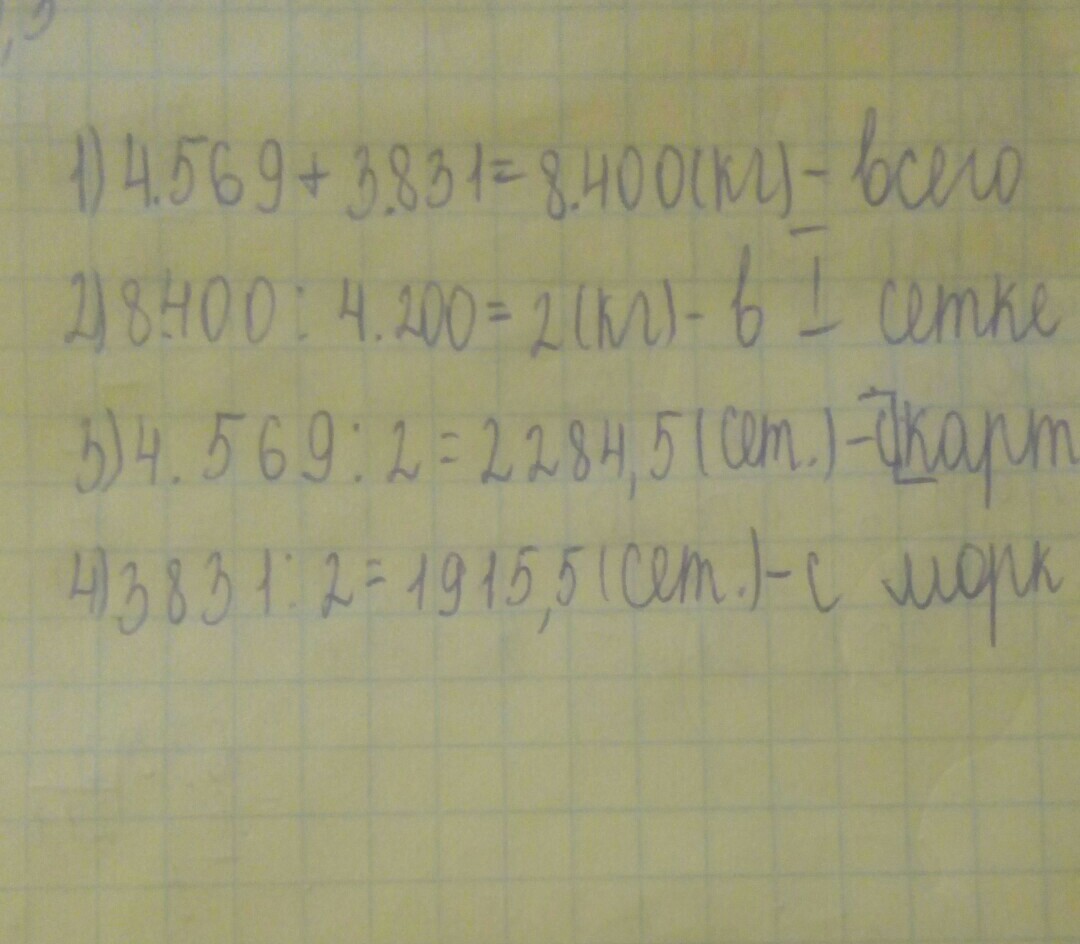 1) 4.569 + 3.831 = 8.400 (кг) - всего
2) 8.400 : 4.200 = 2 (кг) - в I сетке
3) 4.569 : 2 = 2284,5 (сет.) - с карт
4) 3831 : 2 = 1915,5 (сет.) - с морк